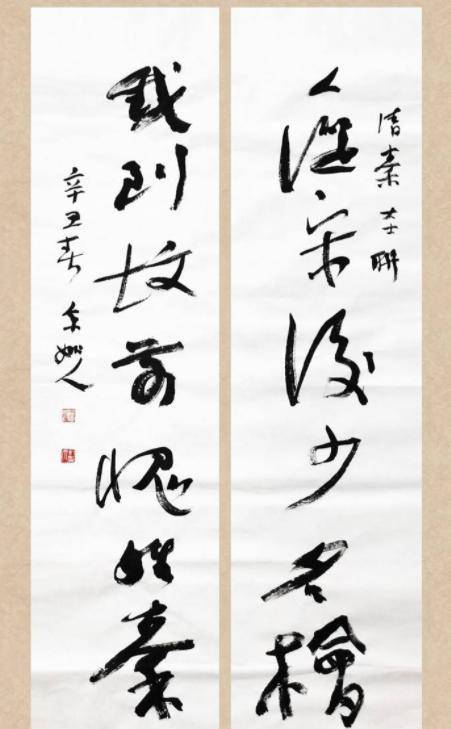 清秦大士聯
人從宋後少名檜
我到坟前愧姓秦
辛丑春